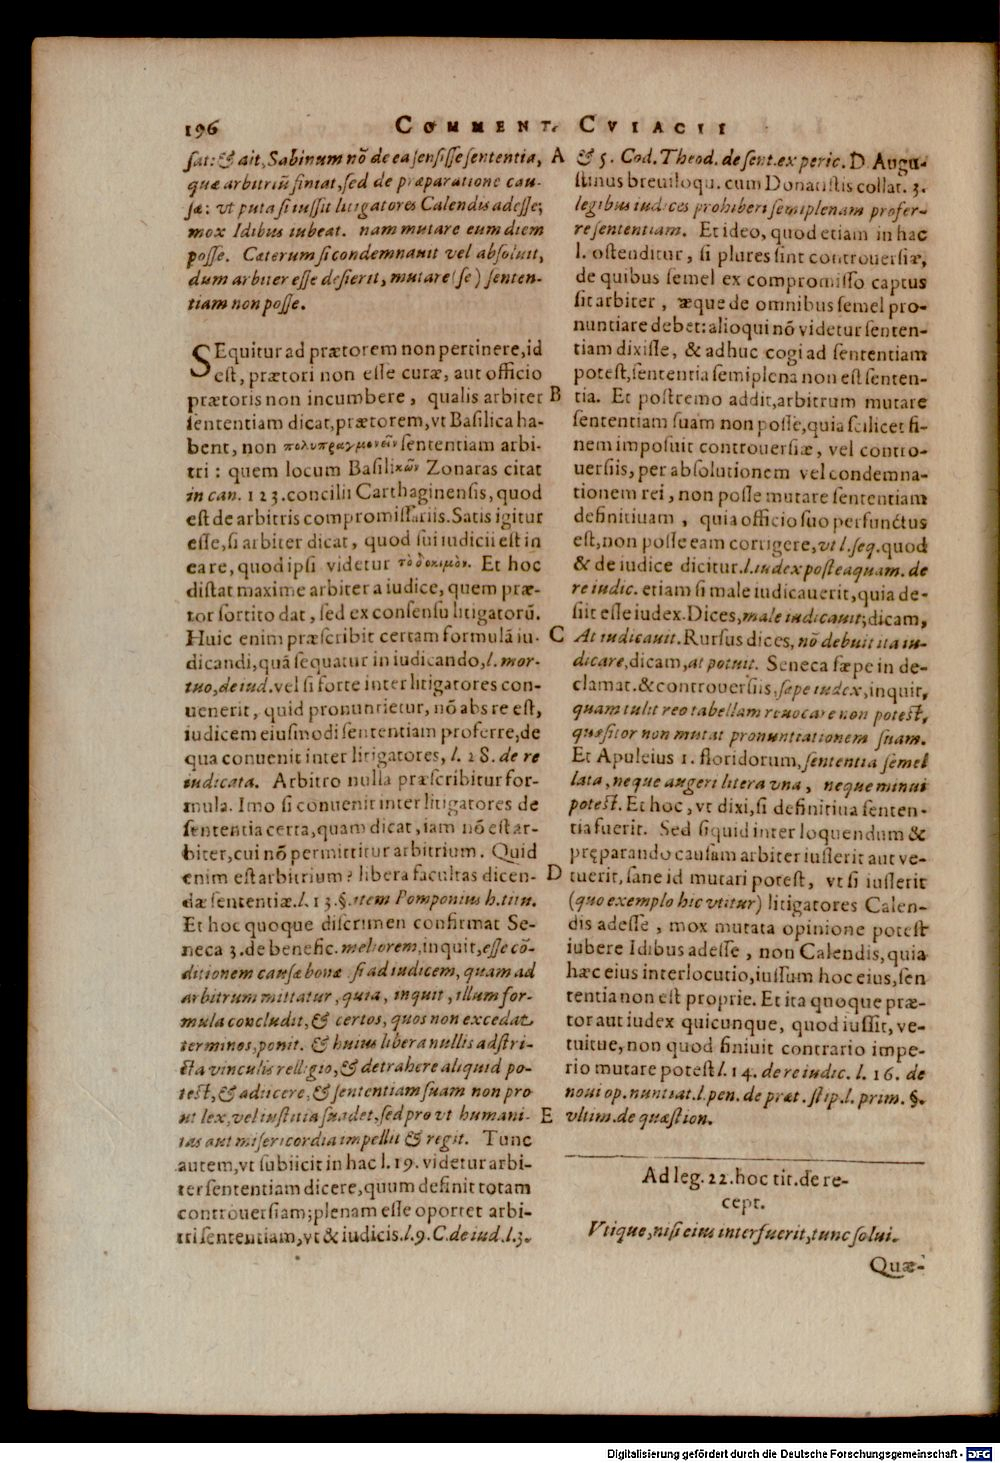 196 COMMENT. CVIACII
sat: & ait, Sabinum nō de ea sensisse sententia,
quæ arbitriū finiat, sed de præparatione cau-
sæ: vt puta si iussit litigatores Calendis adesse;
mox Idibus iubeat. nam mutare eum diem
posse. Cæterum si condemnauit vel absoluit,
dum arbiter esse desierit, mutare (se) senten-
tiam non posse.
SEquitur ad prætorem non pertinere, id
est, prætori non esse curæ, aut officio
prætoris non incumbere, qualis arbiter
sententiam dicat, prætorem, vt Basilica ha-
bent, non πολυπραγμονεῖν sententiam arbi-
tri: quem locum Basilικῶν Zonaras citat
in can. 123. concilii Carthaginensis, quod
est de arbitris compromissariis. Satis igitur
esse, si arbiter dicat, quod sui iudicii est in
ea re, quod ipsi videtur τὸ δοκιμὸν. Et hoc
distat maxime arbiter a iudice, quem præ-
tor sortito dat, sed ex consensu litigatorū.
Huic enim præscribit certam formulā iu-
dicandi, quā sequatur in iudicando, l. mor-
tuo, de iud. vel si forte inter litigatores con-
uenerit, quid pronuntietur, nō abs re est,
iudicem eiusmodi sententiam proferre, de
qua conuenit inter litigatores, l. 28. de re
iudicata. Arbitro nulla præscribitur for-
mula. Imo si conuenit inter litigatores de
sententia certa, quam dicat, iam nō est ar-
biter, cui nō permittitur arbitrium. Quid
enim est arbitrium? libera facultas dicen-
dæ sententiæ. l. 13. §. item Pomponius h. titu.
Et hoc quoque discrimen confirmat Se-
neca 3. de benefic. meliorem, inquit, esse cō-
ditionem causæ bonæ si ad iudicem, quam ad
arbitrum mittatur, quia, inquit, illum for-
mula concludit, & certos, quos non excedat
terminos, ponit. & huius libera nullis adstri-
cta vinculis relligio, & detrahere aliquid po-
test, & adiicere, & sententiam suam non pro
ut lex, vel iustitia suadet, sed pro vt humani-
tas aut misericordia impellit & regit. Tunc
autem, vt subiicit in hac l. 19. videtur arbi-
ter sententiam dicere, quum definit totam
controuersiam; plenam esse oportet arbi-
tri sententiam, vt & iudicis. l. 9. C. de iud. l. 3.
A
B
C
D
E
& 5. Cod. Theod. de sent. ex peric. D. Augu-
stinus breuiloqu. cum Donatistis collat. 3.
legibus iudices prohiberi semiplenam profer-
re sententiam. Et ideo, quod etiam in hac
l. ostenditur, si plures sint controuersiæ,
de quibus semel ex compromisso captus
sit arbiter, æque de omnibus semel pro-
nuntiare debet: alioqui nō videtur senten-
tiam dixisse, & adhuc cogi ad sententiam
potest, sententia semiplena non est senten-
tia. Et postremo addit, arbitrum mutare
sententiam suam non posse, quia scilicet fi-
nem imposuit controuersiæ, vel contro-
uersiis, per absolutionem vel condemna-
tionem rei, non posse mutare sententiam
definitiuam, quia officio suo perfunctus
est, non posse eam corrigere, vt l. seq. quod
& de iudice dicitur. l. iudex posteaquam. de
re iudic. etiam si male iudicauerit, quia de-
siit esse iudex. Dices, male iudicauit; dicam,
At iudicauit. Rursus dices, nō debuit ita iu-
dicare, dicam, at potuit. Seneca sæpe in de-
clamat. & controuersiis, sæpe iudex, inquit,
quam tulit reo tabellam reuocare non potest,
quæsitor non mutat pronuntiationem suam.
Et Apuleius 1. floridorum, sententia semel
lata, neque augeri litera vna, neque minui
potest. Et hoc, vt dixi, si definitiua senten-
tia fuerit. Sed siquid inter loquendum &
pręparando causam arbiter iusserit aut ve-
tuerit, sane id mutari potest, vt si iusserit
(quo exemplo hic vtitur) litigatores Calen-
dis adesse, mox mutata opinione potest
iubere Idibus adesse, non Calendis, quia
hæc eius interlocutio, iussum hoc eius, sen
tentia non est proprie. Et ita quoque præ-
tor aut iudex quicunque, quod iussit, ve-
tuitue, non quod finiuit contrario impe-
rio mutare potest l. 14. de re iudic. l. 16. de
noui op. nuntiat. l. pen. de præt. stip. l. prim. §.
vltim. de quæstion.
Ad leg. 22. hoc tit. de re-
cept.
Vtique, nisi eius interfuerit, tunc solui.
Quæ-
Digitalisierung gefördert durch die Deutsche Forschungsgemeinschaft - DFG